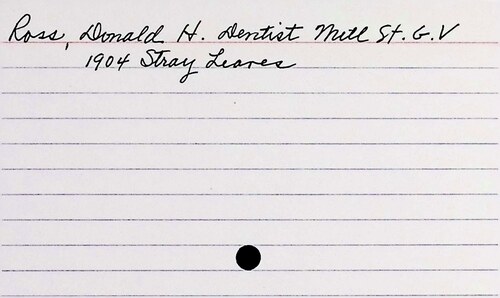 Ross, Donald H. Dentist Mill St. G.V
1904 Stray Leaves